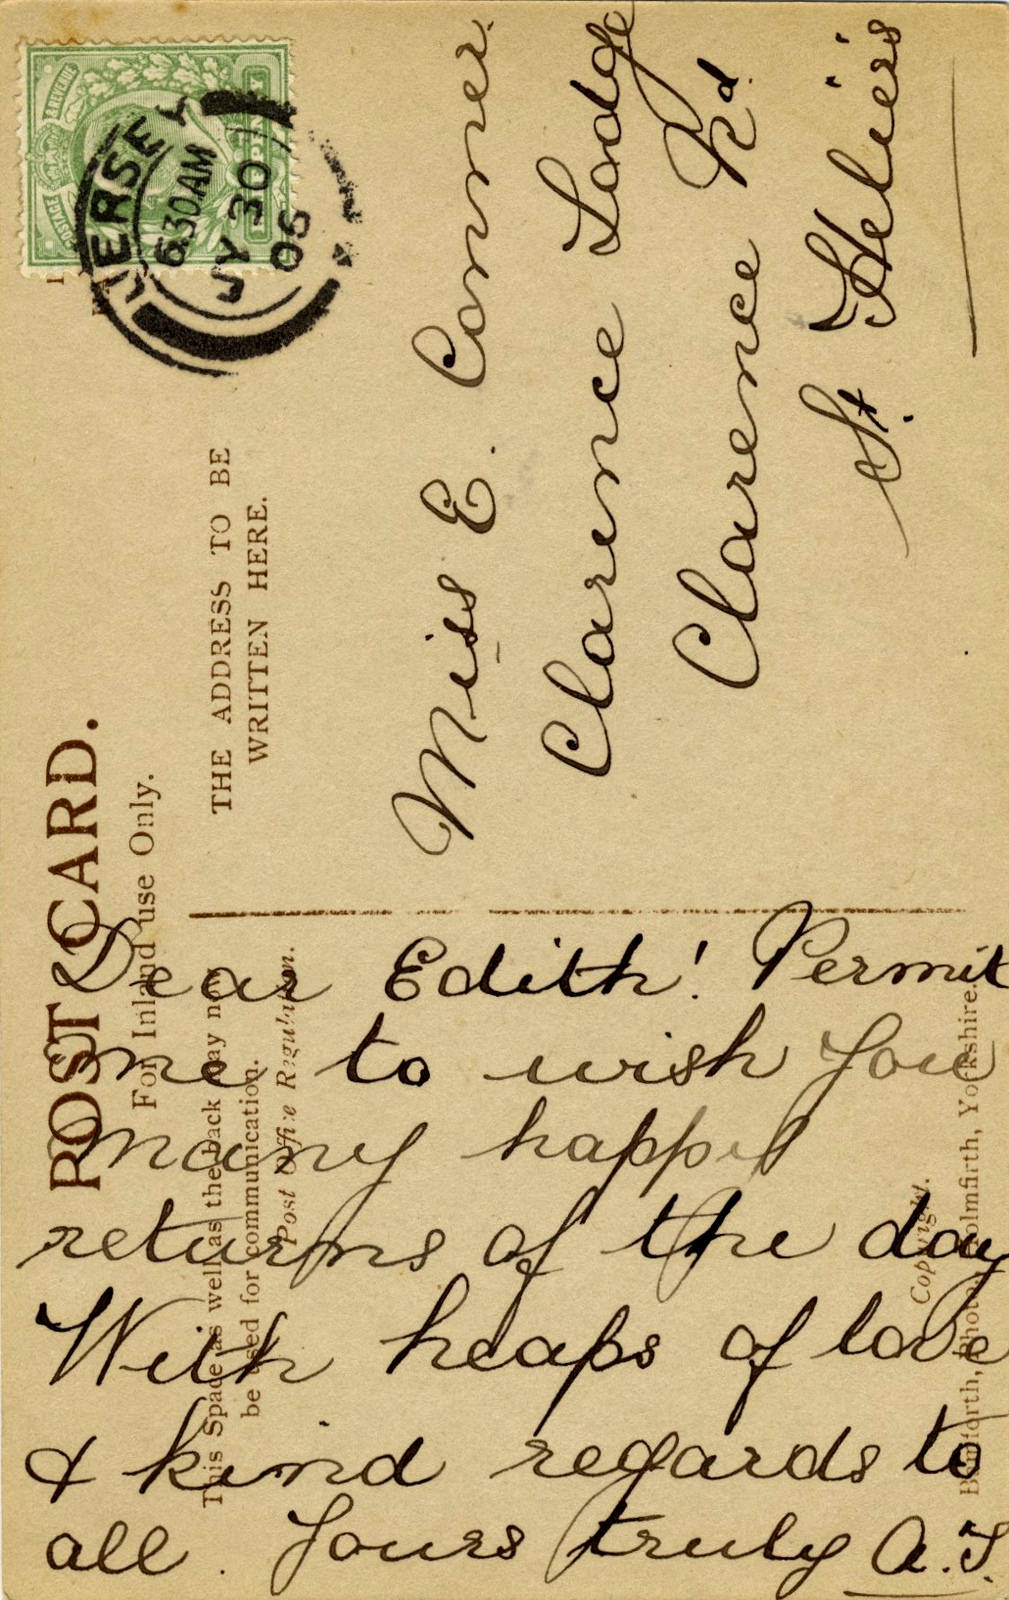 POST CARD.
For Inland use Only.
THE ADDRESS TO BE
WRITTEN HERE.
This Space as well as the back may now
be used for communication.
Post Office Regulation.
POSTAGE
& REVENUE
JERSEY
6.30AM
JY 30
06
Miss E. Conner.
Clarence Lodge
Clarence Rd.
St. Heliers
Dear Edith! Permit
me to wish you
many happy
returns of the day
With heaps of love
& kind regards to
all. Yours truly A.J.
Copyright.
Bamforth, Photo., Holmfirth, Yorkshire.